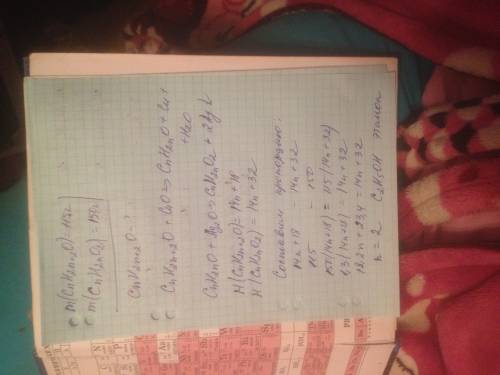 m(CnH2n+2O) = 115г
m(CnH2nO2) = 150г
CnH2n+2O - ?
CnH2n+2O + CuO => CnH2nO + Cu +
+ H2O
CnH2nO + Ag2O => CnH2nO2 + 2Ag↓
M(CnH2n+2O) = 14n + 18
M(CnH2nO2) = 14n + 32
Составим пропорцию:
14n+18 - 14n+32
115 - 150
150(14n+18) = 115(14n+32)
1,3(14n+18) = 14n+32
18,2n + 23,4 = 14n+32
n = 2 C2H5OH этанол